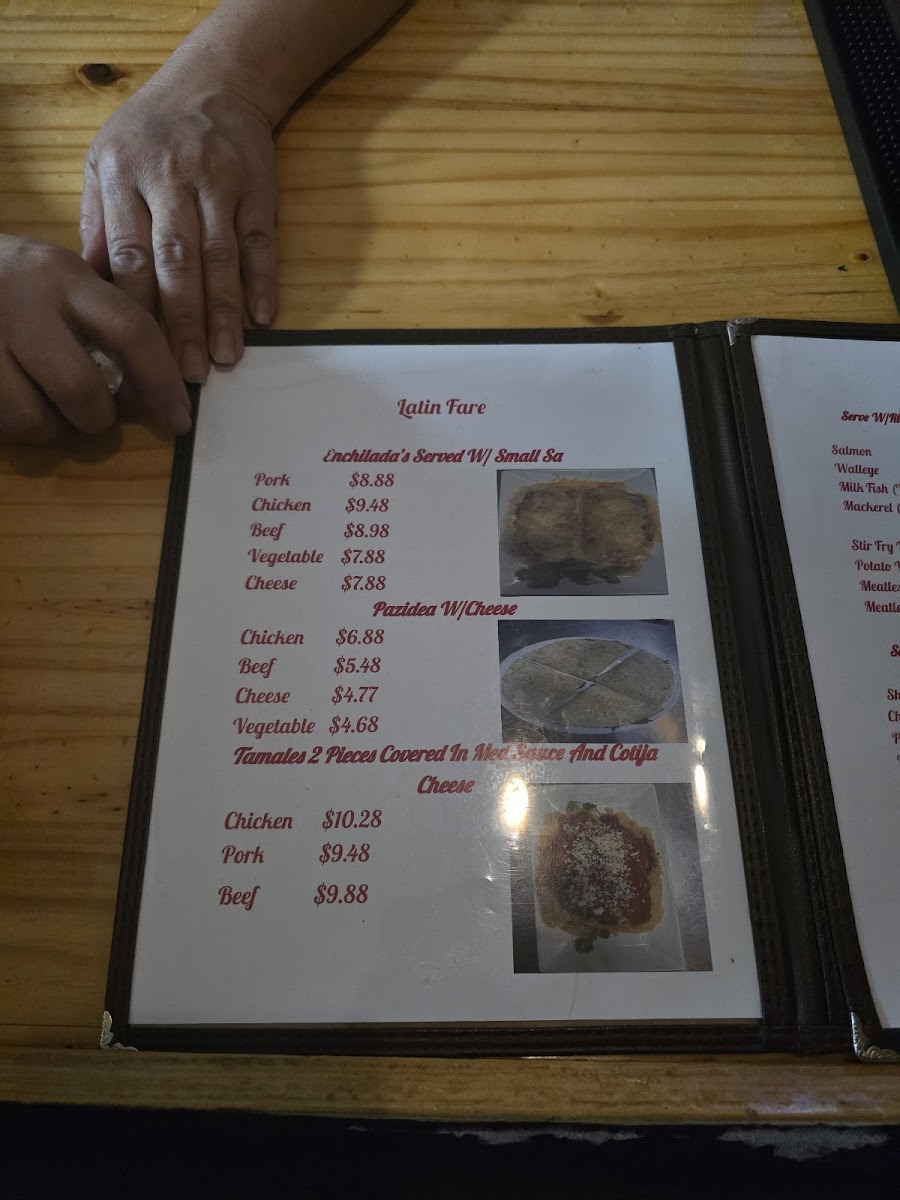 Latin Fare
Enchilada's Served W/ Small Sa
Pork $8.88
Chicken $9.48
Beef $8.98
Vegetable $7.88
Cheese $7.88
Pazidea W/Cheese
Chicken $6.88
Beef $5.48
Cheese $4.77
Vegetable $4.68
Tamales 2 Pieces Covered In Med Sauce And Cotija
Cheese
Chicken $10.28
Pork $9.48
Beef $9.88
Serve W/
Salmon
Walleye
Milk Fish
Mackerel
Stir Fry
Potato